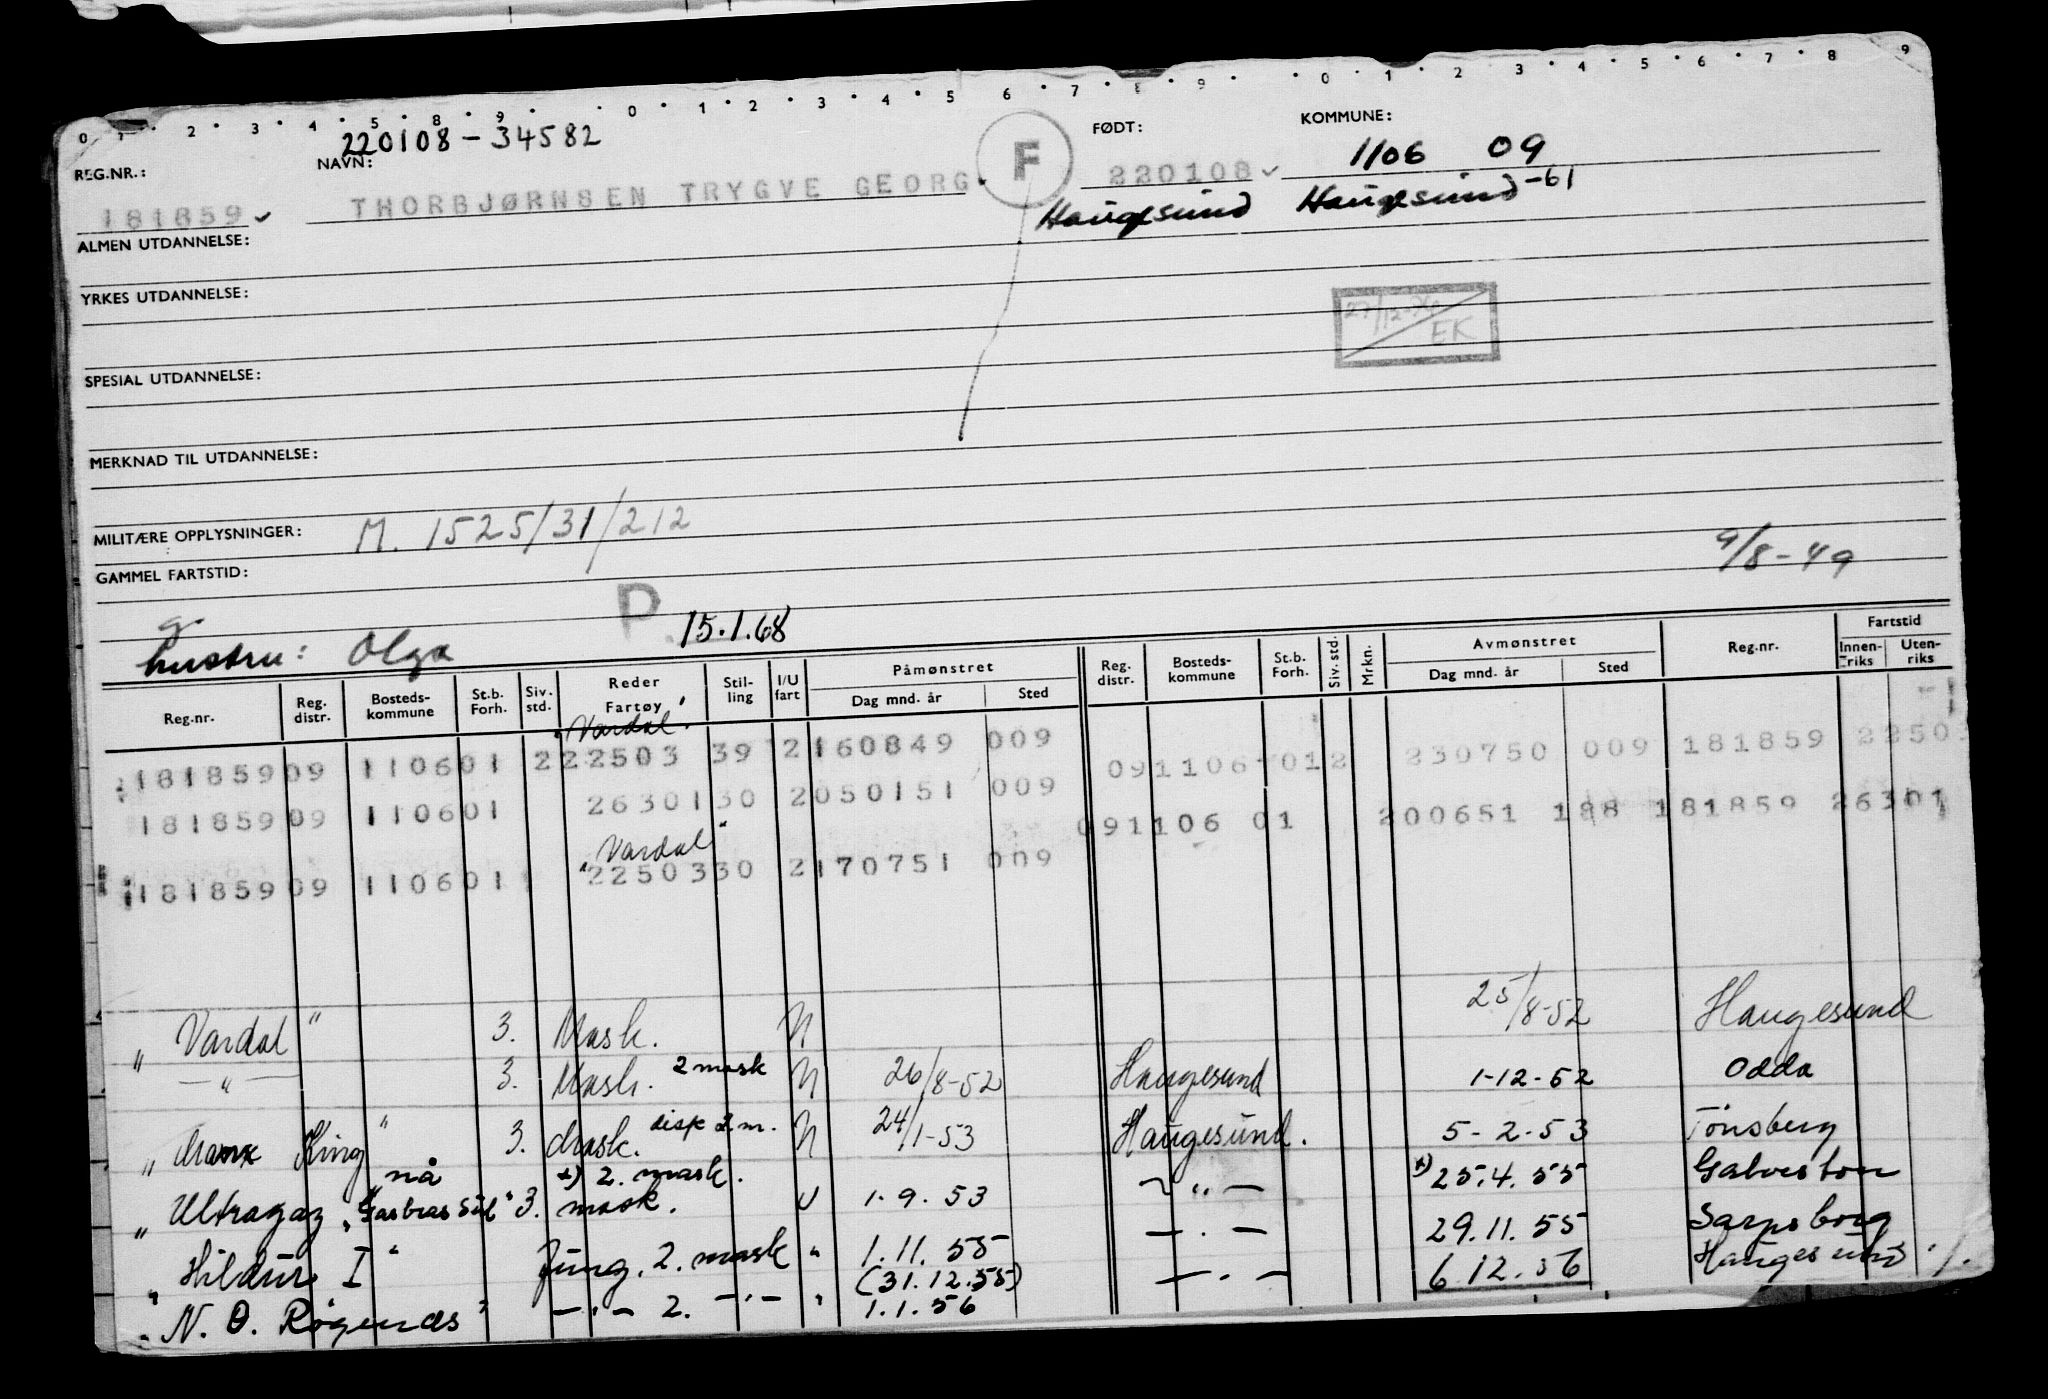 0 1 2 3 4 5 8 9 0 1 2 3 4 5 6 7 8 9 0 1 2 3 4 5 6 7 8 9
220108-34582
REG.NR.: NAVN: F FØDT: KOMMUNE:
1106 09
181859 THORBJØRNSEN TRYGVE GEORG 220108
Haugesund Haugesund -61
ALMEN UTDANNELSE:
YRKES UTDANNELSE:
EK
SPESIAL UTDANNELSE:
MERKNAD TIL UTDANNELSE:
MILITÆRE OPPLYSNINGER: M. 1525/31/212
9/8-49
GAMMEL FARTSTID:
P 15.1.68
g.
hustru: Olga
Reg.nr. Reg. distr. Bosteds-kommune St.b. Forh. Siv. std. Reder Fartøy Stil-ling I/U fart Påmønstret Dag mnd. år Sted Reg. distr. Bosteds-kommune St.b. Forh. Siv. std. Mrkn. Avmønstret Dag mnd. år Sted Reg.nr. Fartstid Innen-riks Uten-riks
"Vardal"
181859 09 1106 01 2 22503 39 2 160849 009 09 1106 01 2 230750 009 181859 2250
181859 09 1106 01 26301 30 2 050151 009 09 1106 01 200651 188 181859 26301
"Vardal"
181859 09 1106 01 22503 30 2 170751 009
"Vardal" 3. Mask. N 25/8-52 Haugesund
— " — 3. Mask. 2 mask N 26/8-52 Haugesund 1-12-52 Odda
" King" 3. Mask. disp 2 m. N 24/1-53 Haugesund. 5-2-53 Tönsberg
nå x) 2. mask.
"Ultragaz 3. mask. U 1.9.53 — " — x) 25.4.55 Galveston
"Hildur I" Jung. 2. mask " 1.11.55 — " — 29.11.55 Sarpsborg
(31.12.55)
"N. O. Røgenæs" — " — 2. — " — " 1.1.56 — " — 6.12.56 Haugesund ./.